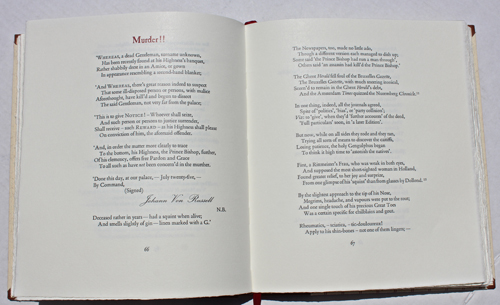 Murder!!
'WHEREAS, a dead Gentleman, surname unknown,
Has been recently found at his Highness's banquet,
Rather shabbily drest in an Amice, or gown
In appearance resembling a second-hand blanket;
'And WHEREAS, there's great reason indeed to suspect
That some ill-disposed person or persons, with malice
Aforethought, have kill'd and begun to dissect
The said Gentleman, not very far from the palace;
'This is to give NOTICE! – Whoever shall seize,
And such person or persons to justice surrender,
Shall receive – such REWARD – as his Highness shall please
On conviction of him, the aforesaid offender.
'And, in order the matter more clearly to trace
To the bottom, his Highness, the Prince Bishop, further,
Of his clemency, offers free Pardon and Grace
To all such as have not been concern'd in the murther.
'Done this day, at our palace, – July twenty-five, –
By Command,
(Signed)
Johann Von Russell
N.B.
Deceased rather in years – had a squint when alive;
And smells slightly of gin – linen marked with a G.'
66
The Newspapers, too, made no little ado,
Though a different version each managed to dish up;
Some said 'the Prince Bishop had run a man through',
Others said 'an assassin had kill'd the Prince Bishop.'
The Ghent Herald fell foul of the Bruxelles Gazette,
The Bruxelles Gazette, with much sneering ironical,
Scorn'd to remain in the Ghent Herald's debt,
And the Amsterdam Times quizzed the Nuremberg Chronicle.
In one thing, indeed, all the journals agreed,
Spite of 'politics', 'bias', or 'party collision';
Viz: to 'give', when they'd 'further accounts' of the deed,
'Full particulars' soon, in 'a later Edition'.
But now, while on all sides they rode and they ran,
Trying all sorts of means to discover the caitiffs,
Losing patience, the holy Gengulphus began
To think it high time to 'astonish the natives'.
First, a Rittmeister's Frau, who was weak in both eyes,
And supposed the most short-sighted woman in Holland,
Found greater relief, to her joy and surprise,
From one glimpse of his 'squint' than from glasses by Dollond.
By the slightest approach to the tip of his Nose,
Megrims, headache, and vapours were put to the rout;
And one single touch of his precious Great Toes
Was a certain specific for chilblains and gout.
Rheumatics, – sciatica, – tic-douloureux!
Apply to his shin-bones – not one of them lingers; –
67